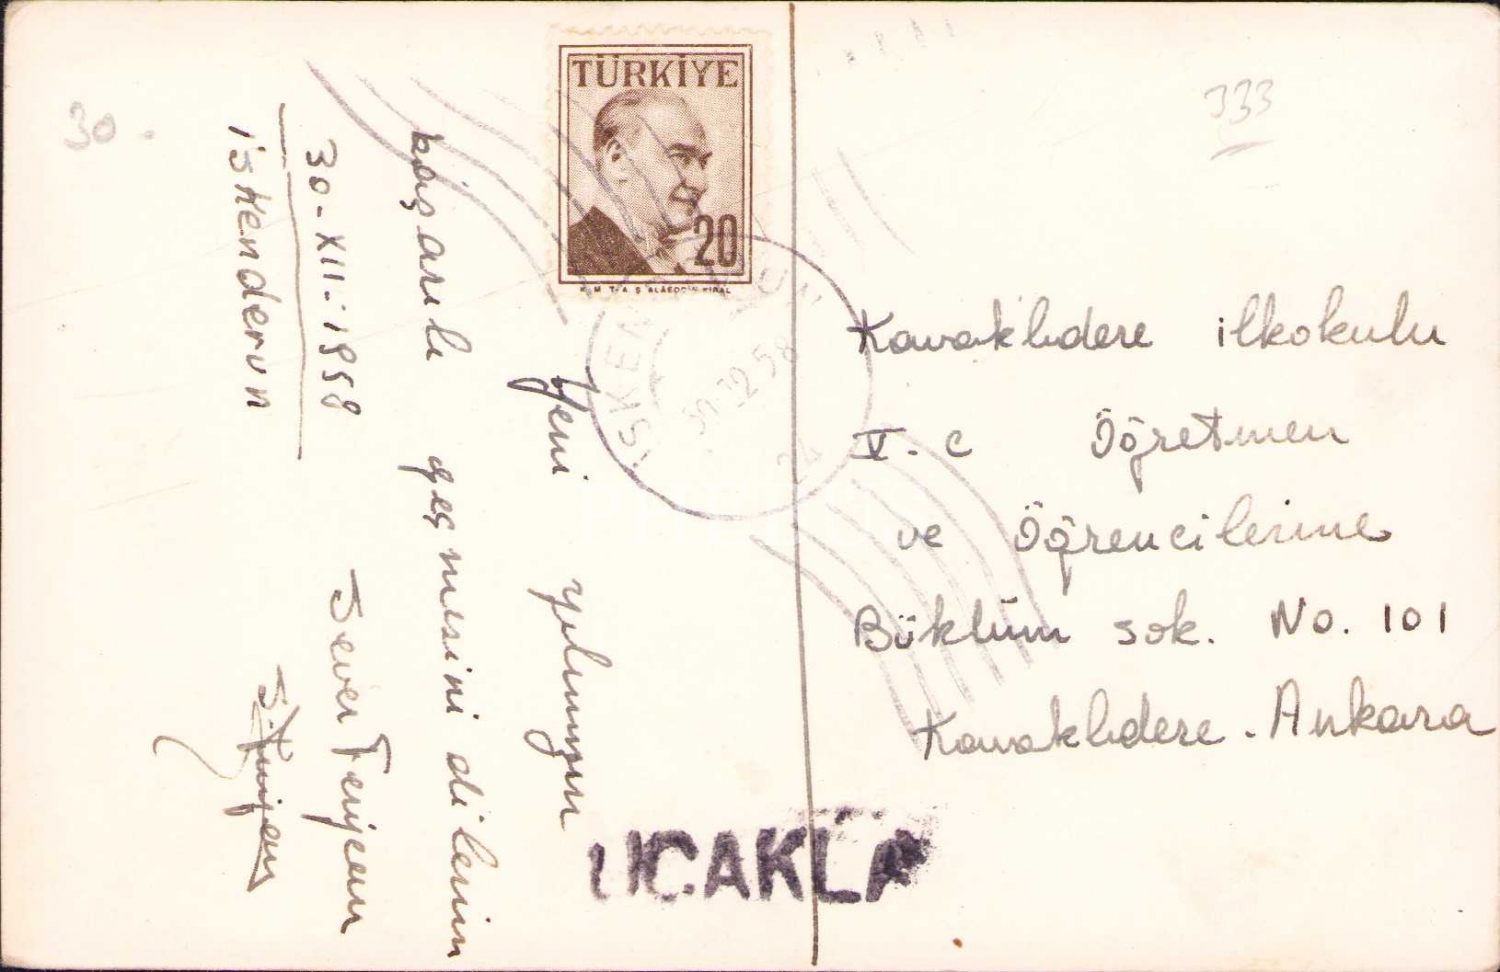 30.
333
TÜRKİYE
20
İSKENDERUN
30.12.58
24
Yeni yılınızın
başarılı geçmesini dilerim
Sever
30-XII-1958
İskenderun
Kavaklıdere ilkokulu
V. c Öğretmen
ve Öğrencilerine
Büklüm sok. No. 101
Kavaklıdere. Ankara
UÇAKLA